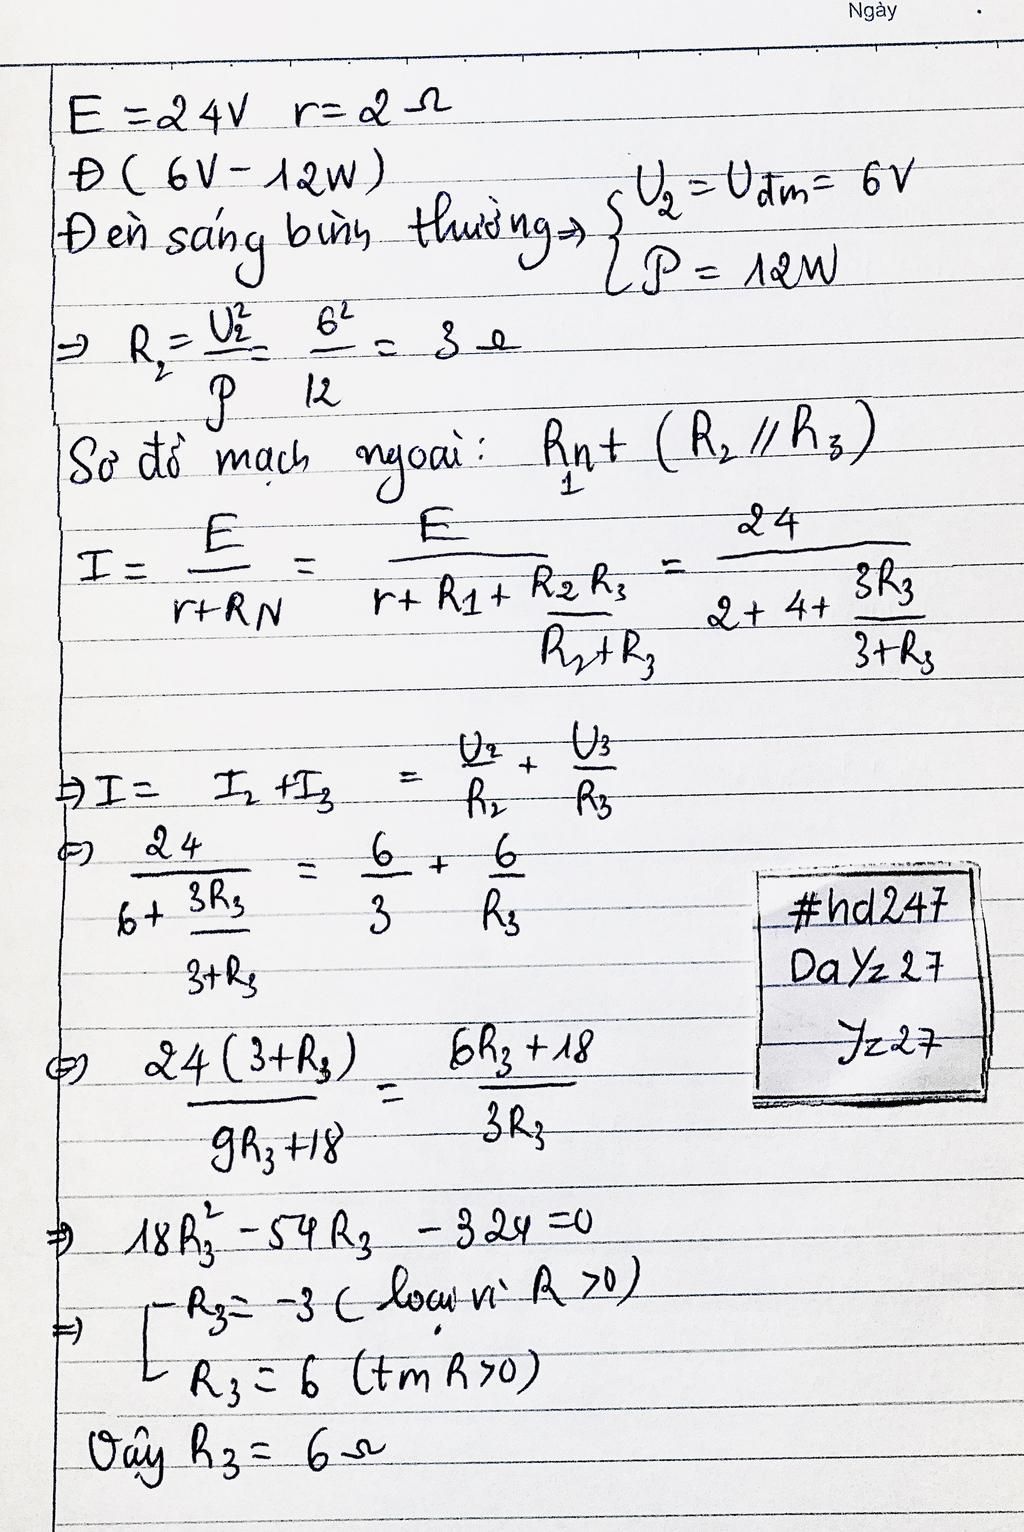 Ngày
E = 24V r = 2 Ω
Đ ( 6V - 12W )
Đèn sáng bình thường => { U₂ = Uđm = 6V
P = 12W
=> R₂ = U₂²/P = 6²/12 = 3 Ω
Sơ đồ mạch ngoài: R₁ nt (R₂ // R₃)
I = E/(r+RN) = E/(r+R1+R₂R₃/(R₂+R₃)) = 24/(2+4+3R₃/(3+R₃))
=> I = I₂ + I₃ = U₂/R₂ + U₃/R₃
<=> 24/(6+3R₃/(3+R₃)) = 6/3 + 6/R₃
<=> 24(3+R₃)/(9R₃+18) = (6R₃+18)/(3R₃)
=> 18R₃² - 54R₃ - 324 = 0
=> [ R₃ = -3 ( loại vì R >0)
R₃ = 6 (tm R>0)
Vậy R₃ = 6 Ω
#hd247
DaYz27
Yz27